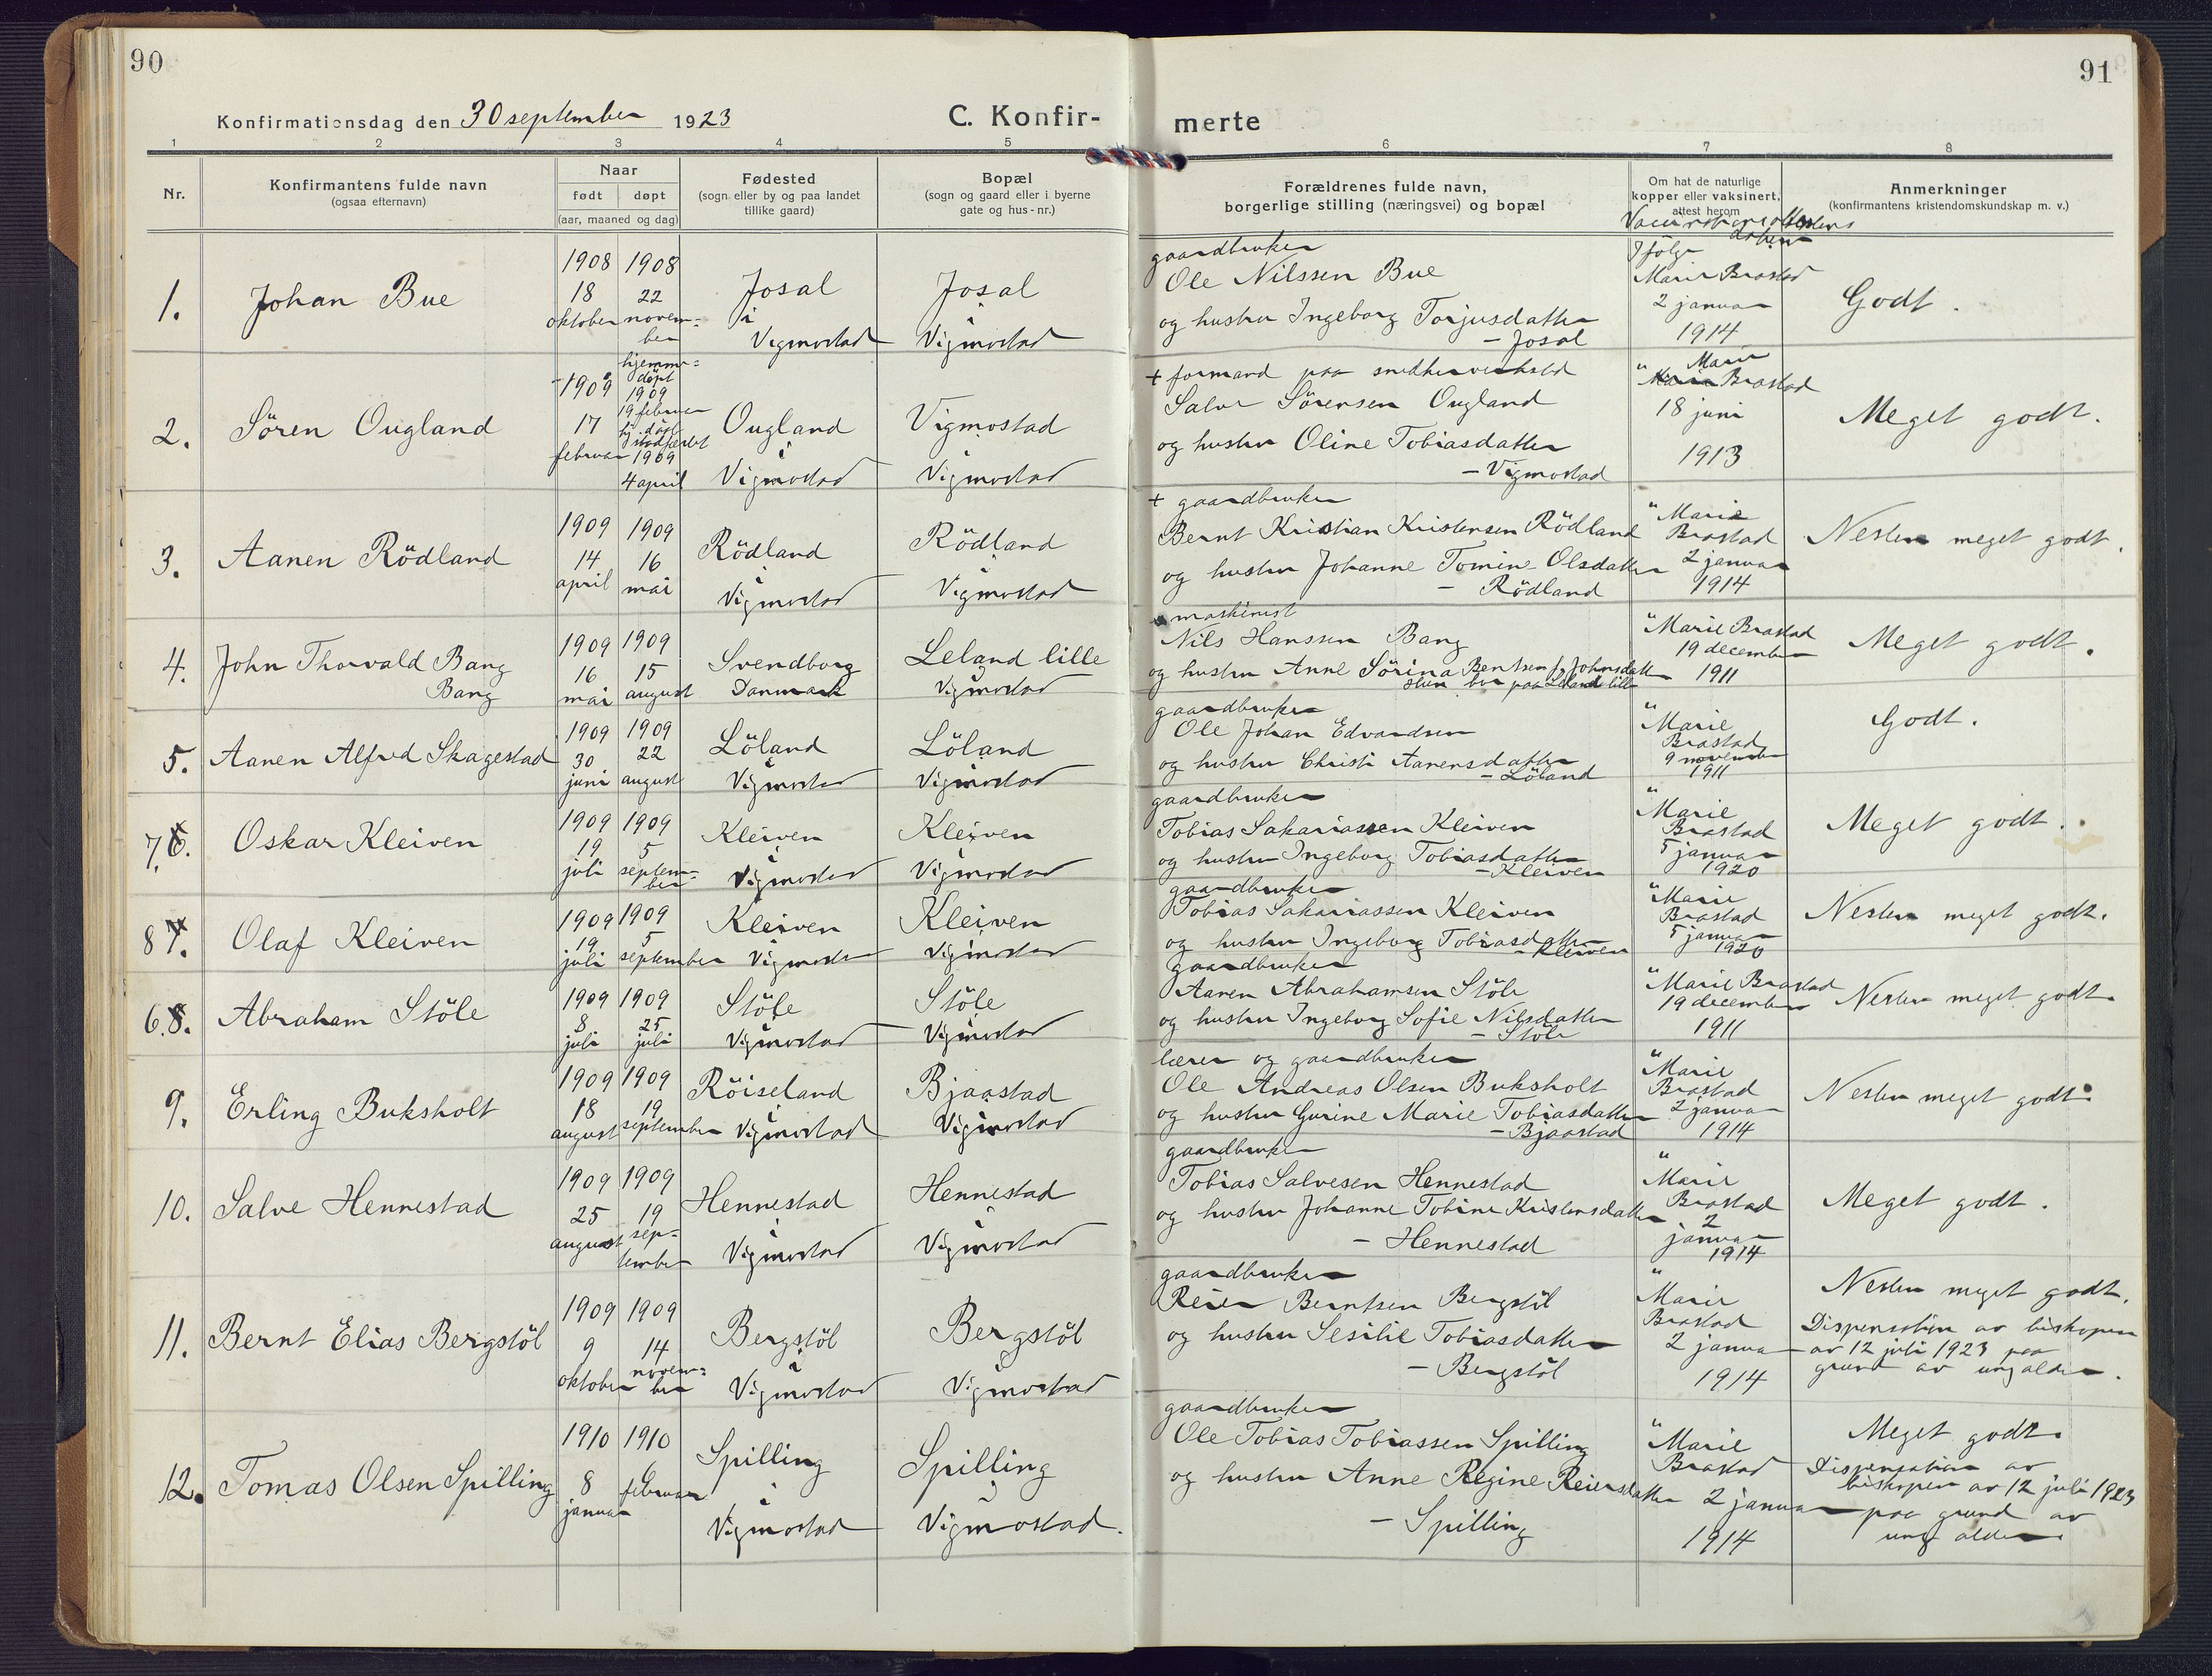 90
91
Konfirmationsdag den 30 september 1923
C. Konfir-
merte
1 2 3 4 5 6 7 8
Nr.
Konfirmantens fulde navn
(ogsaa efternavn)
Naar
født døpt
(aar, maaned og dag)
Fødested
(sogn eller by og paa landet
tillike gaard)
Bopæl
(sogn og gaard eller i byerne
gate og hus-nr.)
Forældrenes fulde navn,
borgerlige stilling (næringsvei) og bopæl
Om hat de naturlige
kopper eller vaksinert,
attest herom
Anmerkninger
(konfirmantens kristendomskundskap m. v.)
1.
Johan Bue
1908
18
oktober
1908
22
novem=
ber
Josal
i
Vigmostad
Josal
i
Vigmostad
gaardbruker
Ole Nilssen Bue
og hustru Ingeborg Torjusdatter
– Josal
Ifølge
Marie Brastad
2 januar
1914
Godt.
2.
Sören Ougland
1909
17
februar
hjemme=
døpt
1909
19 februar
hj. døpt
stadfæstet
1909
4 april
Ougland
i
Vigmostad
Vigmostad
i
Vigmostad
+ formand paa snedkerverksted
Salve Sörensen Ougland
og hustru Oline Tobiasdatter
– Vigmostad
" Marie
Brastad
18 juni
1913
Meget godt.
3.
Aanen Rödland
1909
14
april
1909
16
mai
Rödland
i
Vigmostad
Rödland
i
Vigmostad
+ gaardbruker
Bernt Kristian Kristensen Rödland
og hustru Johanne Tomine Olsdatter
– Rödland
" Marie
Brastad
2 januar
1914
Nesten meget godt.
4.
John Thorvald Bang
Bang
1909
16
mai
1909
15
august
Svendborg
Danmark
Leland lille
i
Vigmostad
maskinist
Nils Hanssen Bang
og hustru Anne Sörina Bentsen f. Johnsdatter
Hun bor paa Leland lille
" Marie Brastad
19 december
1911
Meget godt.
5.
Aanen Alfred Skagestad
1909
30
juni
1909
22
august
Löland
i
Vigmostad
Löland
i
Vigmostad
gaardbruker
Ole Johan Edvardsen
og hustru Christi Aanensdatter
– Löland
" Marie
Brastad
9 november
1911
Godt.
7. 6.
Oskar Kleiven
1909
19
juli
1909
5
septem=
ber
Kleiven
i
Vigmostad
Kleiven
i
Vigmostad
gaardbruker
Tobias Sakariassen Kleiven
og hustru Ingeborg Tobiasdatter
– Kleiven
" Marie
Brastad
5 januar
1920
Meget godt.
8 7.
Olaf Kleiven
1909
19
juli
1909
5
september
Kleiven
i
Vigmostad
Kleiven
i
Vigmostad
gaardbruker
Tobias Sakariassen Kleiven
og hustru Ingeborg Tobiasdatter
– Kleiven
" Marie
Brastad
5 januar
1920
Nesten meget godt.
6. 8.
Abraham Stöle
1909
8
juli
1909
25
juli
Stöle
i
Vigmostad
Stöle
i
Vigmostad
gaardbruker
Aanen Abrahamsen Stöle
og hustru Ingeborg Sofie Nilsdatter
– Stöle
" Marie Brastad
19 december
1911
Nesten meget godt.
9.
Erling Buksholt
1909
18
august
1909
19
september
Röiseland
i
Vigmostad
Bjaastad
i
Vigmostad
lærer og gaardbruker
Ole Andreas Olsen Buksholt
og hustru Gurine Marie Tobiasdatter
– Bjaastad
" Marie
Brastad
2 januar
1914
Nesten meget godt.
10.
Salve Hennestad
1909
25
august
1909
19
sep=
tember
Hennestad
i
Vigmostad
Hennestad
i
Vigmostad
gaardbruker
Tobias Salvesen Hennestad
og hustru Johanne Tobine Kristensdatter
– Hennestad
" Marie
Brastad
2
januar
1914
Meget godt.
11.
Bernt Elias Bergstöl
1909
9
oktober
1909
14
novem=
ber
Bergstöl
i
Vigmostad
Bergstöl
i
Vigmostad
gaardbruker
Reier Berntsen Bergstöl
og hustru Sesilie Tobiasdatter
– Bergstöl
" Marie
Brastad
2 januar
1914
Nesten meget godt.
Dispensation av biskopen
av 12 juli 1923 paa
grund av ung alder.
12.
Tomas Olsen Spilling
1910
8
januar
1910
6
februar
Spilling
i
Vigmostad
Spilling
i
Vigmostad.
gaardbruker
Ole Tobias Tobiassen Spilling
og hustru Anne Regine Reiersdatter
– Spilling
" Marie
Brastad
2 januar
1914
Meget godt.
Dispensation av
biskopen av 12 juli 1923
paa grund av
ung alder.